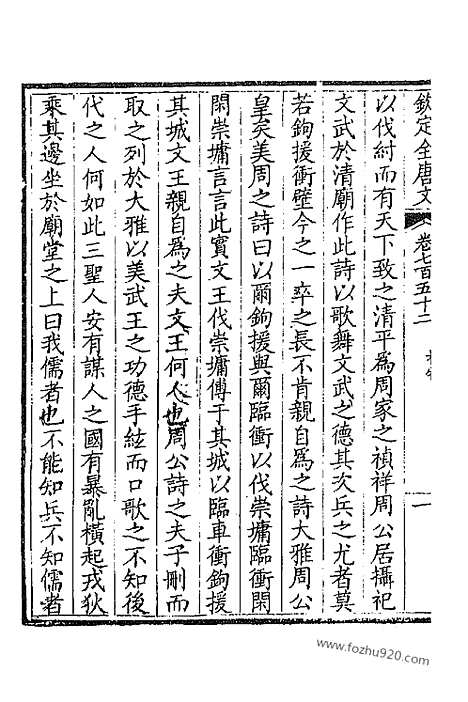 欽定全唐文 卷七百五十二 一
以伐紂而有天下致之清平為周家之禎祥周公居攝祀
文武於清廟作此詩以歌舞文武之德其次兵之尤者莫
若鉤援衝壁今之一卒之長不肯親自為之詩大雅周公
皇矣美周之詩曰以爾鉤援與爾臨衝以伐崇墉臨衝閑
閑崇墉言言此實文王伐崇墉傅于其城以臨車衝鉤援
其城文王親自為之夫文王何人也周公詩之夫子刪而
取之列於大雅以美武王之功德手絃而口歌之不知後
代之人何如此三聖人安有謀人之國有暴亂橫起戎狄
乘其邊坐於廟堂之上曰我儒者也不能知兵不知儒者
www.fozhu920.com